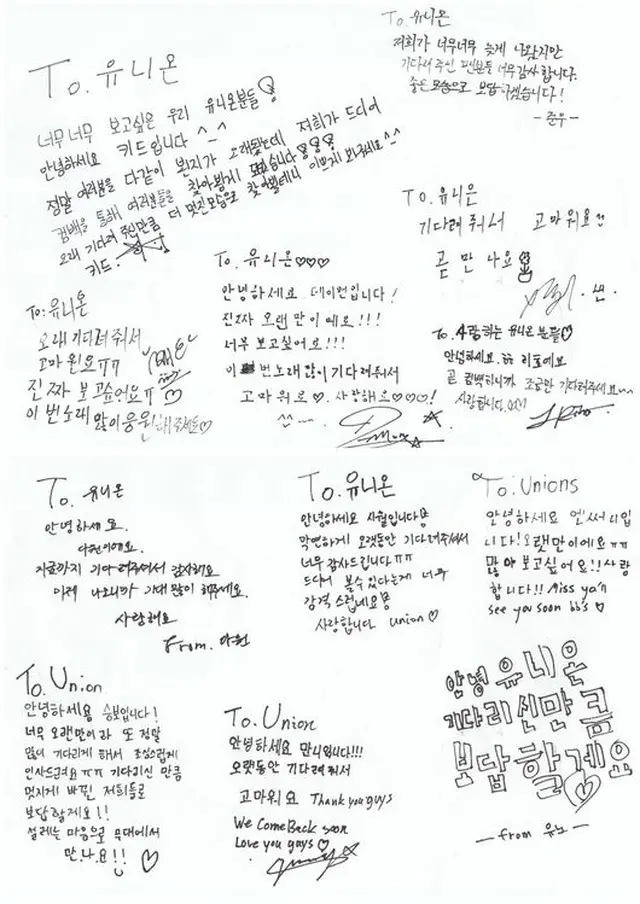 To. 유니온
너무너무 보고싶은 우리 유니온분들
안녕하세요 키드입니다 ^-^
정말 여러분을 다같이 뵌지가 오래됐는데 저희가 드디어
컴백을 통해 여러분들을 찾아뵙게 됐습니다
오래 기다려 주신만큼 더 멋진모습으로 찾아뵐테니 이쁘게 봐주세요^-^
키드.
To. 유니온
저희가 너무너무 늦게 나왔지만
기다려 주신 팬분들 너무 감사합니다.
좋은 모습으로 보답하겠습니다!
- 준우 -
To. 유니온
기다려 줘서 고마워요
곧 만나요
To. 유니온♡♡♡
안녕하세요 데이먼입니다!
진짜 오랜만이예요!!!
너무 보고싶어요!!!
이번노래 많이 기다려줘서
고마워요♡. 사랑해요♡♡♡!
To: 유니온
오래 기다려줘서
고마워요ㅠㅠ
진짜 보고싶어요ㅠ
이번노래 많이응원해주세요♡
To. 사랑하는 유니온 분들♡
안녕하세요. 리토예요
곧 컴백하니까 조금만 기다려주세요~~
사랑합니다.
To. 유니온
안녕하세요.
다원이에요.
지금까지 기다려주셔서 감사해요
이제 나오니까 기대 많이 해주세요.
사랑해요
From. 다원
To. 유니온
안녕하세요 사월입니다
막연하게 오랫동안 기다려주셔서
너무 감사드립니다ㅠㅠ
드디어 볼수있다는게 너무
감격스럽네요
사랑합니다 union♡
To. Unions
안녕하세요 엔써니입
니다! 오랫만이에요ㅠㅠ
많이 보고싶어요!! 사랑
합니다!! Miss ya'll
see you soon bb's ♡
To. Union
안녕하세요 승보입니다!
너무 오랜만이라 또 정말
많이 기다리게 해서 조심스럽게
인사드려요ㅠㅠ 기다리신 만큼
멋지게 바뀐 저희들로
보답할게요!!
설레는 마음으로 무대에서
만.나.요!! ♡
To. Union
안녕하세요 만니입니다!!!
오랫동안 기다려줘서
고마워요 Thank you guys
We ComeBack soon
Love you guys♡
안녕 유니온
기다리신만큼
보답할게요
-from 유노-